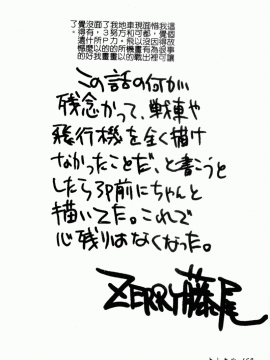 這個故事讓
我覺得很可
惜，因為裡
面都沒有出
現可以畫戰
車和飛機的
地方。所以
我努力的畫
了３Ｐ的畫
面，所以我
沒有什麼好
覺得遺憾的
了。
この話の何が
残念かって、戦車や
飛行機を全く描け
なかったことだ、と書こうと
したら3P前にちゃんと
描いてた。これで
心残りはなくなった。
ZERRY藤尾